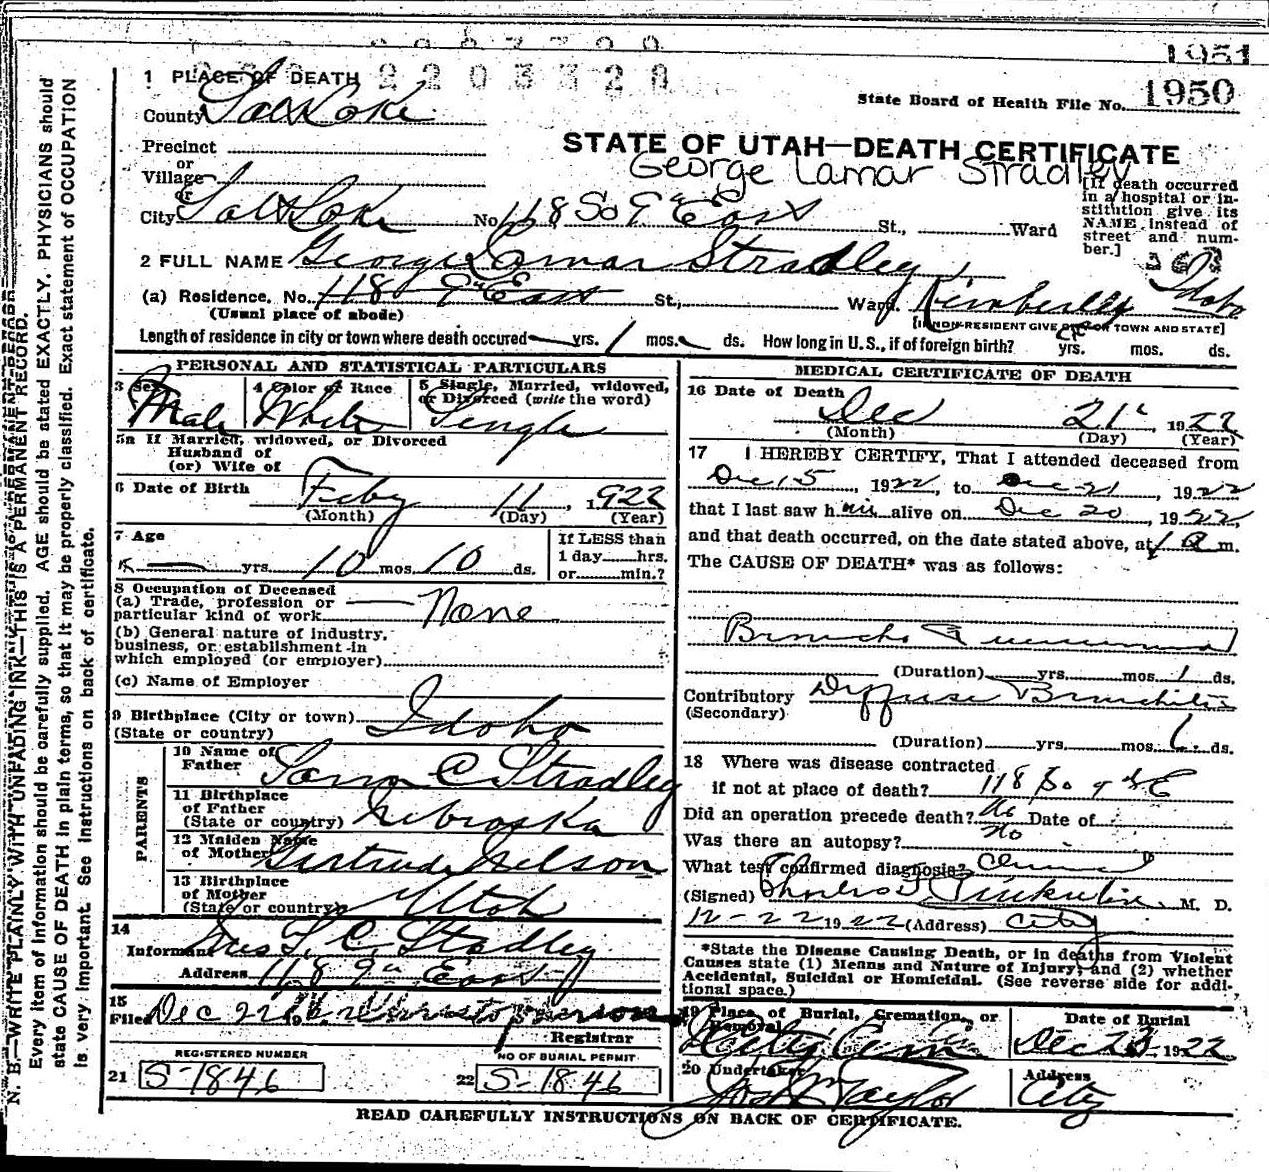 1951
2203328
State Board of Health File No. 1950
1 PLACE OF DEATH
County Salt Lake
STATE OF UTAH—DEATH CERTIFICATE
George Lamar Stradley
Precinct
or
Village
or
City Salt Lake No. 118 So 9th East St., Ward
[If death occurred in a hospital or institution give its NAME instead of street and number.]
2 FULL NAME George Lamar Stradley
(a) Residence. No. 118 9th East St., Ward. Kimberly Idaho
(Usual place of abode)
[If NON-RESIDENT GIVE CITY OR TOWN AND STATE]
Length of residence in city or town where death occured yrs. 1 mos. ds. How long in U. S., if of foreign birth? yrs. mos. ds.
PERSONAL AND STATISTICAL PARTICULARS
3 Sex Male
4 Color or Race White
5 Single, Married, widowed, or Divorced (write the word) Single
5a If Married, widowed, or Divorced
Husband of
(or) Wife of
6 Date of Birth Feby 11, 1922
(Month) (Day) (Year)
7 Age yrs. 10 mos. 10 ds.
If LESS than
1 day hrs.
or min.?
8 Occupation of Deceased
(a) Trade, profession or
particular kind of work None
(b) General nature of Industry,
business, or establishment in
which employed (or employer)
(c) Name of Employer
9 Birthplace (City or town)
(State or country) Idaho
PARENTS
10 Name of
Father C Stradley
11 Birthplace
of Father
(State or country) Nebraska
12 Maiden Name
of Mother Gertrude Nelson
13 Birthplace
of Mother
(State or country) Utah
14
Informant Mrs C. Stradley
Address 118 9th East
15
Filed Dec 22
Registrar
REGISTERED NUMBER
21 S-1846
NO OF BURIAL PERMIT
22 S-1846
MEDICAL CERTIFICATE OF DEATH
16 Date of Death
Dec 21, 1922
(Month) (Day) (Year)
17 I HEREBY CERTIFY, That I attended deceased from
Dec 15, 1922, to Dec 21, 1922
that I last saw him alive on Dec 20, 1922,
and that death occurred, on the date stated above, at 1 a m.
The CAUSE OF DEATH* was as follows:
Broncho Pneumonia
(Duration) yrs. mos. ds.
Contributory Diffuse Bronchitis
(Secondary)
(Duration) yrs. mos. ds.
18 Where was disease contracted
if not at place of death? 118 So 9th E
Did an operation precede death? No Date of
Was there an autopsy? no
What test confirmed diagnosis? Clinical
(Signed) M. D.
12-22 1922 (Address) City
*State the Disease Causing Death, or in deaths from Violent
Causes state (1) Means and Nature of Injury; and (2) whether
Accidental, Suicidal or Homicidal. (See reverse side for additional space.)
19 Place of Burial, Cremation, or
Removal City Cem
Date of Burial
Dec 23 1922
20 Undertaker
Taylor
Address
City
READ CAREFULLY INSTRUCTIONS ON BACK OF CERTIFICATE.
N. B.—WRITE PLAINLY WITH UNFADING INK—THIS IS A PERMANENT RECORD.
Every item of Information should be carefully supplied. AGE should be stated EXACTLY. PHYSICIANS should
state CAUSE OF DEATH in plain terms, so that it may be properly classified. Exact statement of OCCUPATION
is very important. See instructions on back of certificate.